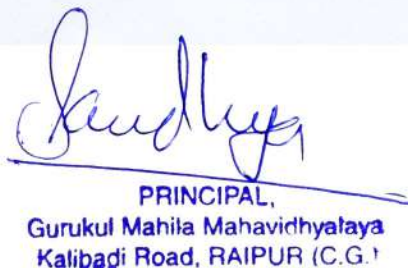 Sandhya
PRINCIPAL,
Gurukul Mahila Mahavidhyalaya
Kalibadi Road, RAIPUR (C.G.)